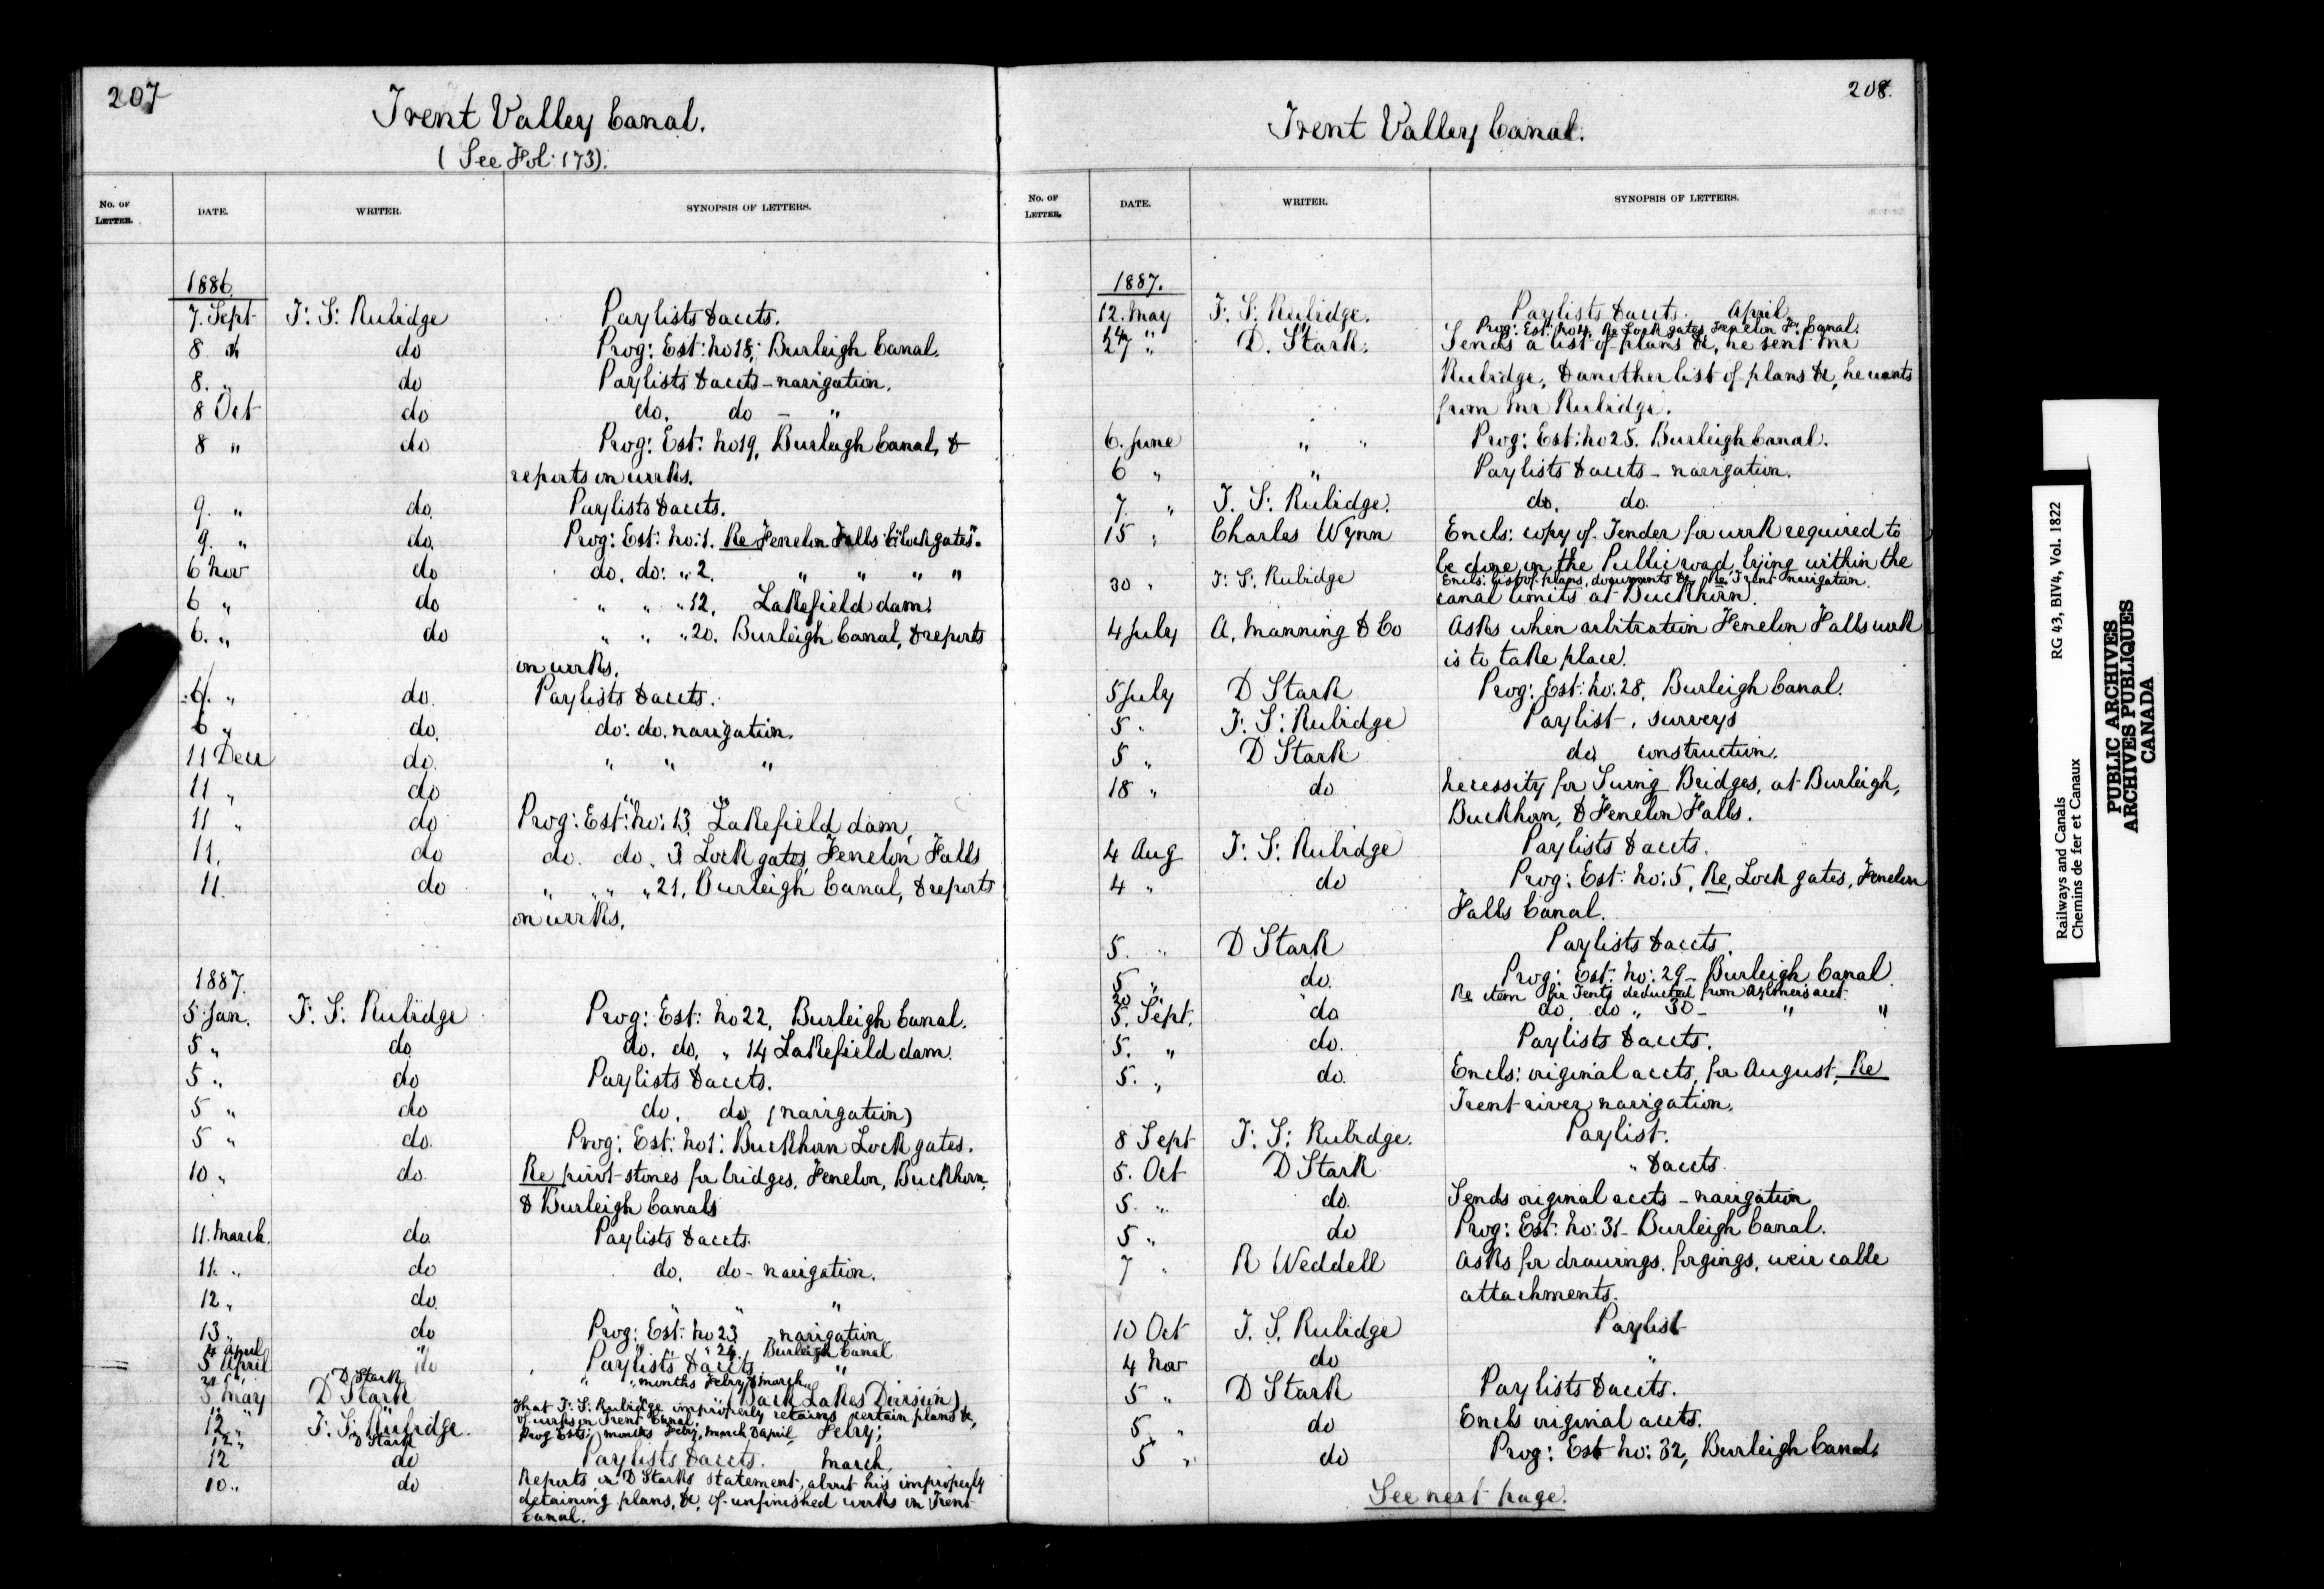 207
Trent Valley Canal.
(See Fol: 173).
No. of Letter. DATE. WRITER. SYNOPSIS OF LETTERS.
1886.
7. Sept T: S: Rubidge Paylists & accts.
8 do Prog: Est: No 18, Burleigh Canal.
8. " do Paylists & accts - navigation.
8 Oct do do. do - "
8 " do Prog: Est: No 19, Burleigh Canal, &
reports on works.
9. " do. Paylists & accts.
9. " do. Prog: Est: No: 1. Re Fenelon Falls "Lock gates".
6 Nov do do. do: " 2. " " " "
6 " do " " " 12, Lakefield dam.
6. " do " " " 20. Burleigh Canal, & reports
on works.
6. " do. Paylists & accts.
6 " do. do: do. navigation.
11 Decr do. " " "
11 " do " "
11 " do Prog: Est: No: 13 Lakefield dam,
11. do do. do. 3 Lock gates, Fenelon Falls
11. do " " " 21, Burleigh Canal, & reports
on works.
1887.
5 Jan. T: S: Rubidge Prog: Est: No 22, Burleigh Canal.
5 " do. do. do. " 14 Lakefield dam.
5 " do Paylists & accts.
5 " do do. do (navigation)
5 " do. Prog: Est: No 1: Buckhorn Lock gates.
10 " do. Re pivot stones for bridges, Fenelon, Buckhorn,
& Burleigh Canals
11. March. do. Paylists & accts.
11. " do do. do - navigation.
12 " do. " " "
13 " do Prog: Est: No 23 navigation
4 April " " " " 24. Burleigh Canal
5 April do Paylists & accts "
" " months Febry & March
D Stark
5 May D Stark (Back Lakes Division)
That T: S: Rubidge improperly retains certain plans &c,
of works on Trent Canal.
12 " T: S: Rubidge. Febry;
12 " D Stark Prog Ests: months Febry, March & April
12 do Paylists & accts. March.
10 " do Reports on D Starks statement, about his improperly
detaining plans, &c, of unfinished works on Trent
Canal.
208.
Trent Valley Canal.
No. of Letter. DATE. WRITER. SYNOPSIS OF LETTERS.
1887.
12. May T. S: Rubidge. Paylists & accts. April
14 " " Prog: Est: No 4. Re Lock gates, Fenelon Fs. Canal.
27 " D. Stark. Sends a list of plans &c, he sent Mr
Rubidge, & another list of plans &c, he wants
from Mr Rubidge.
6. June " " Prog: Est: No 25. Burleigh Canal.
6 " " Paylists & accts - navigation.
7. " T. S: Rubidge. do. do.
15 " Charles Wynn Encls: copy of Tender for work required to
be done on the Public road, lying within the
30 " T: S: Rubidge Encls: list of plans, documents &c, Re Trent navigation.
canal limits at Buckhorn.
4 July A. Manning & Co Asks when arbitration Fenelon Falls work
is to take place.
5 July D Stark Prog: Est: No: 28, Burleigh Canal.
5 " T: S: Rubidge Paylist, surveys
5 " D Stark do, construction.
18 " do Necessity for Swing Bridges, at Burleigh,
Buckhorn, & Fenelon Falls.
4 Aug T: S: Rubidge Paylists & accts.
4 " do Prog: Est: No: 5, Re, Lock gates, Fenelon
Falls Canal.
5. " D Stark Paylists & accts.
5 " do. Prog: Est: No: 29 - Burleigh Canal.
30 " " Re item for Tents deducted from Aylmers acct.
5. Sept. do do. do " 30 - " "
5. " do. Paylists & accts.
5. " do. Encls: original accts, for August, Re
Trent river navigation.
8 Sept T: S: Rubidge. Paylist.
5. Oct D Stark " & accts.
5. " do. Sends original accts - navigation
5 " do Prog: Est: No: 31 - Burleigh Canal.
7 " R Weddell Asks for drawings, forgings, weir cable
attachments.
10 Oct T. S. Rubidge Paylist
4 Nov do "
5 " D Stark Paylists & accts.
5 " do Encls original accts.
5 " do Prog: Est No: 32, Burleigh Canal.
See next page.
Railways and Canals RG 43, BIV4, Vol. 1822
Chemins de fer et Canaux
PUBLIC ARCHIVES
ARCHIVES PUBLIQUES
CANADA